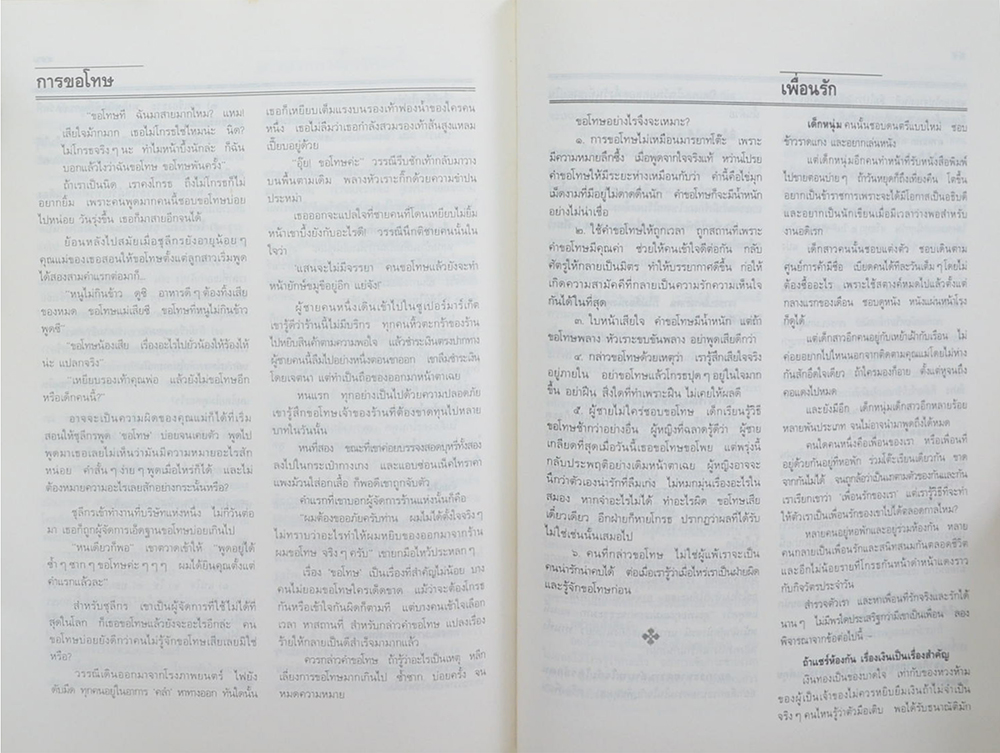 การขอโทษ
"ขอโทษที ฉันมาสายมากไหม? แหม!
เสียใจมักมาก เธอไม่โกรธใช่ไหมนะ นิต?
ไม่โกรธจริง ๆ นะ ทำไมหน้าบึ้งนักล่ะ ก็ฉัน
บอกแล้วไงว่าฉันขอโทษ ขอโทษพันครั้ง"
ถ้าเราเป็นนิต เราคงโกรธ ถึงไม่โกรธก็ไม่
อยากยิ้ม เพราะคนพูดมากคนนี้ชอบขอโทษบ่อย
ไปหน่อย วันรุ่งขึ้น เธอก็มาสายอีกจนได้
ย้อนหลังไปสมัยเมื่อชุลีกรยังอายุน้อย ๆ
คุณแม่ของเธอสอนให้ขอโทษตั้งแต่ลูกสาวเริ่มพูด
ได้สองสามคำแรกต่อมาก็...
"หนูไม่กินข้าว ดูซิ อาหารดี ๆ ต้องทิ้งเสีย
ของหมด ขอโทษแม่เสียซี ขอโทษที่หนูไม่กินข้าว
พูดซี"
"ขอโทษน้องเสีย เรื่องอะไรไปยั่วน้องให้ร้องไห้
น่ะ แปลกจริง"
"เหยียบรองเท้าคุณพ่อ แล้วยังไม่ขอโทษอีก
หรือเด็กคนนี้?"
อาจจะเป็นความผิดของคุณแม่ก็ได้ที่เริ่ม
สอนให้ชุลีกรพูด 'ขอโทษ' บ่อยจนเคยตัว พูดไป
พูดมาเธอเลยไม่เห็นว่ามันมีความหมายอะไรสัก
หน่อย คำสั้น ๆ ง่าย ๆ พูดเมื่อไหร่ก็ได้ และไม่
ต้องหมายความอะไรเลยสักอย่างกระนั้นหรือ?
ชุลีกรเข้าทำงานที่บริษัทแห่งหนึ่ง ไม่กี่วันต่อ
มา เธอก็ถูกผู้จัดการเอ็ดฐานขอโทษบ่อยเกินไป
"หนเดียวก็พอ" เขาตวาดเข้าให้ "พูดอยู่ได้
ซ้ำ ๆ ซาก ๆ ขอโทษค่ะ ๆ ๆ ๆ ผมได้ยินคุณตั้งแต่
คำแรกแล้วละ"
สำหรับชุลีกร เขาเป็นผู้จัดการที่ใช้ไม่ได้ที่
สุดในโลก ก็เธอขอโทษแล้วยังจะอะไรอีกล่ะ คน
ขอโทษบ่อยยังดีกว่าคนไม่รู้จักขอโทษเสียเลยมิใช่
หรือ?
วรรณีเดินออกมาจากโรงภาพยนตร์ ไฟยัง
ดับมืด ทุกคนอยู่ในอาการ 'คลำ' หาทางออก ทันใดนั้น
เธอก็เหยียบเต็มแรงบนรองเท้าฟองน้ำของใครคน
หนึ่ง เธอไม่ลืมว่าเธอกำลังสวมรองเท้าส้นสูงแหลม
เปี๊ยบอยู่ด้วย
"อุ๊ย! ขอโทษค่ะ" วรรณีรีบชักเท้ากลับมาวาง
บนพื้นตามเดิม พลางหัวเราะกิ๊กด้วยความขำปน
ประหม่า
เธอออกจะแปลกใจที่ชายคนที่โดนเหยียบไม่ยิ้ม
หน้าเขาบึ้งยังกับอะไรดี! วรรณีนึกติชายคนนั้นใน
ใจว่า
"แสนจะไม่มีจรรยา คนขอโทษแล้วยังจะทำ
หน้ายักษ์ขมูขีอยู่อีก แย่จัง!"
ผู้ชายคนหนึ่งเดินเข้าไปในซูเปอร์มาร์เก็ต
เขารู้ดีว่าร้านนี้ไม่มีบริกร ทุกคนหิ้วตะกร้าของร้าน
ไปหยิบสินค้าตามความพอใจ แล้วชำระเงินตรงปากทาง
ผู้ชายคนนี้ลืมไปอย่างหนึ่งตอนขาออก เขาลืมชำระเงิน
โดยเจตนา แต่ทำเป็นถือของออกมาหน้าตาเฉย
หนแรก ทุกอย่างเป็นไปด้วยความปลอดภัย
เขารู้สึกขอโทษเจ้าของร้านที่ต้องขาดทุนไปหลาย
บาทในวันนั้น
หนที่สอง ขณะที่เขาค่อยบรรจงสอดบุหรี่ทั้งสอง
ลงไปในกระเป๋ากางเกง และแอบซ่อนเน็คไทราคา
แพงม้วนใส่อกเสื้อ ก็พอดีเขาถูกจับตัว
คำแรกที่เขาบอกผู้จัดการร้านแห่งนั้นก็คือ
"ผมต้องขออภัยครับท่าน ผมไม่ได้ตั้งใจจริง ๆ
ไม่ทราบว่าอะไรทำให้ผมหยิบของออกมาจากร้าน
ผมขอโทษ จริง ๆ ครับ" เขายกมือไหว้ประหลก ๆ
เรื่อง 'ขอโทษ' เป็นเรื่องที่สำคัญไม่น้อย บาง
คนไม่ยอมขอโทษใครเด็ดขาด แม้ว่าจะต้องโกรธ
กันหรือเข้าใจกันผิดก็ตามที แต่บางคนเข้าใจเลือก
เวลา หาสถานที่ สำหรับกล่าวคำขอโทษ แปลงเรื่อง
ร้ายให้กลายเป็นดีสำเร็จมามากแล้ว
ควรกล่าวคำขอโทษ ถ้ารู้ว่าอะไรเป็นเหตุ หลีก
เลี่ยงการขอโทษมากเกินไป ซ้ำซาก บ่อยครั้ง จน
หมดความหมาย
ขอโทษอย่างไรจึงจะเหมาะ?
๑. การขอโทษไม่เหมือนมารยาทโต๊ะ เพราะ
มีความหมายลึกซึ้ง เมื่อพูดจากใจจริงแท้ หว่านโปรย
คำขอโทษให้มีระยะห่างเหมือนกับว่า คำนี้คือไข่มุก
เม็ดงามที่มีอยู่ไม่ดาดดื่นนัก คำขอโทษก็จะมีน้ำหนัก
อย่างไม่น่าเชื่อ
๒. ใช้คำขอโทษให้ถูกเวลา ถูกสถานที่เพราะ
คำขอโทษมีคุณค่า ช่วยให้คนเข้าใจดีต่อกัน กลับ
ศัตรูให้กลายเป็นมิตร ทำให้บรรยากาศดีขึ้น ก่อให้
เกิดความสามัคคีที่กลายเป็นความรักความเห็นใจ
กันได้ในที่สุด
๓. ใบหน้าเสียใจ คำขอโทษมีน้ำหนัก แต่ถ้า
ขอโทษพลาง หัวเราะขบขันพลาง อย่าพูดเสียดีกว่า
๔. กล่าวขอโทษด้วยเหตุว่า เรารู้สึกเสียใจจริง
อยู่ภายใน อย่าขอโทษแล้วโกรธปุด ๆ อยู่ในใจมาก
ขึ้น อย่าฝืน สิ่งใดที่ทำเพราะฝืน ไม่เคยให้ผลดี
๕. ผู้ชายไม่ใคร่ชอบขอโทษ เด็กเรียนรู้วิธี
ขอโทษช้ากว่าอย่างอื่น ผู้หญิงที่ฉลาดรู้ดีว่า ผู้ชาย
เกลียดที่สุดเมื่อวันนี้เธอขอโทษขอโพย แต่พรุ่งนี้
กลับประพฤติอย่างเดิมหน้าตาเฉย ผู้หญิงอาจจะ
นึกว่าตัวเองน่ารักที่ลืมเก่ง ไม่หมกมุ่นเรื่องอะไรใน
สมอง หากจำอะไรไม่ได้ ทำอะไรผิด ขอโทษเสีย
เดี๋ยวเดียว อีกฝ่ายก็หายโกรธ ปรากฏว่าผลที่ได้รับ
ไม่ใช่เช่นนั้นเสมอไป
๖. คนที่กล่าวขอโทษ ไม่ใช่ผู้แพ้เราจะเป็น
คนน่ารักน่าคบได้ ต่อเมื่อเรารู้ว่าเมื่อไหร่เราเป็นฝ่ายผิด
และรู้จักขอโทษก่อน
เพื่อนรัก
เด็กหนุ่ม คนนั้นชอบดนตรีแบบใหม่ ชอบ
ข้าวราดแกง และอยากเล่นหนัง
แต่เด็กหนุ่มอีกคนทำหน้าที่รับหนังสือพิมพ์
ไปขายตอนบ่าย ๆ ถ้าวันหยุดก็ถึงเที่ยงคืน โตขึ้น
อยากเป็นข้าราชการเพราะจะได้มีโอกาสเป็นอธิบดี
และอยากเป็นนักเขียนเมื่อมีเวลาว่างพอสำหรับ
งานอดิเรก
เด็กสาวคนนั้นชอบแต่งตัว ชอบเดินตาม
ศูนย์การค้ามีชื่อ เบียดคนได้ทีละวันเต็ม ๆ โดยไม่
ต้องซื้ออะไร เพราะใช้สตางค์หมดไปแล้วตั้งแต่
กลางแรกของเดือน ชอบดูหนัง หนังแผ่นหน้าโรง
ก็ดูได้
แต่เด็กสาวอีกคนอยู่กับเหย้าเฝ้ากับเรือน ไม่
ค่อยอยากไปไหนนอกจากติดตามคุณแม่โดยไม่ห่าง
กันสักอึดใจเดียว ถ้าใครมองก็อาย ตั้งแต่หูจนถึง
คอแดงไปหมด
และยังมีอีก เด็กหนุ่มเด็กสาวอีกหลายร้อย
หลายพันประเภท จนไม่อาจนำมาพูดถึงได้หมด
คนใดคนหนึ่งคือเพื่อนของเรา หรือเพื่อนที่
อยู่ด้วยกันอยู่ที่หอพัก ร่วมโต๊ะเรียนเดียวกัน ขาด
จากกันไม่ได้ จนถูกล้อว่าเป็นเงาตามตัวของกันและกัน
เราเรียกเขาว่า 'เพื่อนรักของเรา' แต่เรารู้วิธีที่จะทำ
ให้ตัวเราเป็นเพื่อนรักของเขาไปได้ตลอดกาลไหม?
หลายคนอยู่หอพักและอยู่รวมห้องกัน หลาย
คนกลายเป็นเพื่อนรักและสนิทสนมกันตลอดชีวิต
และอีกไม่น้อยรายที่โกรธกันหน้าดำหน้าแดงราว
กับกิจวัตรประจำวัน
สำรวจตัวเรา และหาเพื่อนที่รักจริงและรักได้
นาน ๆ ไม่มีพรใดประเสริฐกว่ามีเขาเป็นเพื่อน ลอง
พิจารณาจากข้อต่อไปนี้ –
ถ้าแชร์ห้องกัน เรื่องเงินเป็นเรื่องสำคัญ
เงินทองเป็นของบาดใจ เท่ากับของหวงห้าม
ของผู้เป็นเจ้าของไม่ควรหยิบยืมเงินถ้าไม่จำเป็น
จริง ๆ คนไหนรู้ว่าตัวมือเติบ พอได้รับธนาณัติมัก